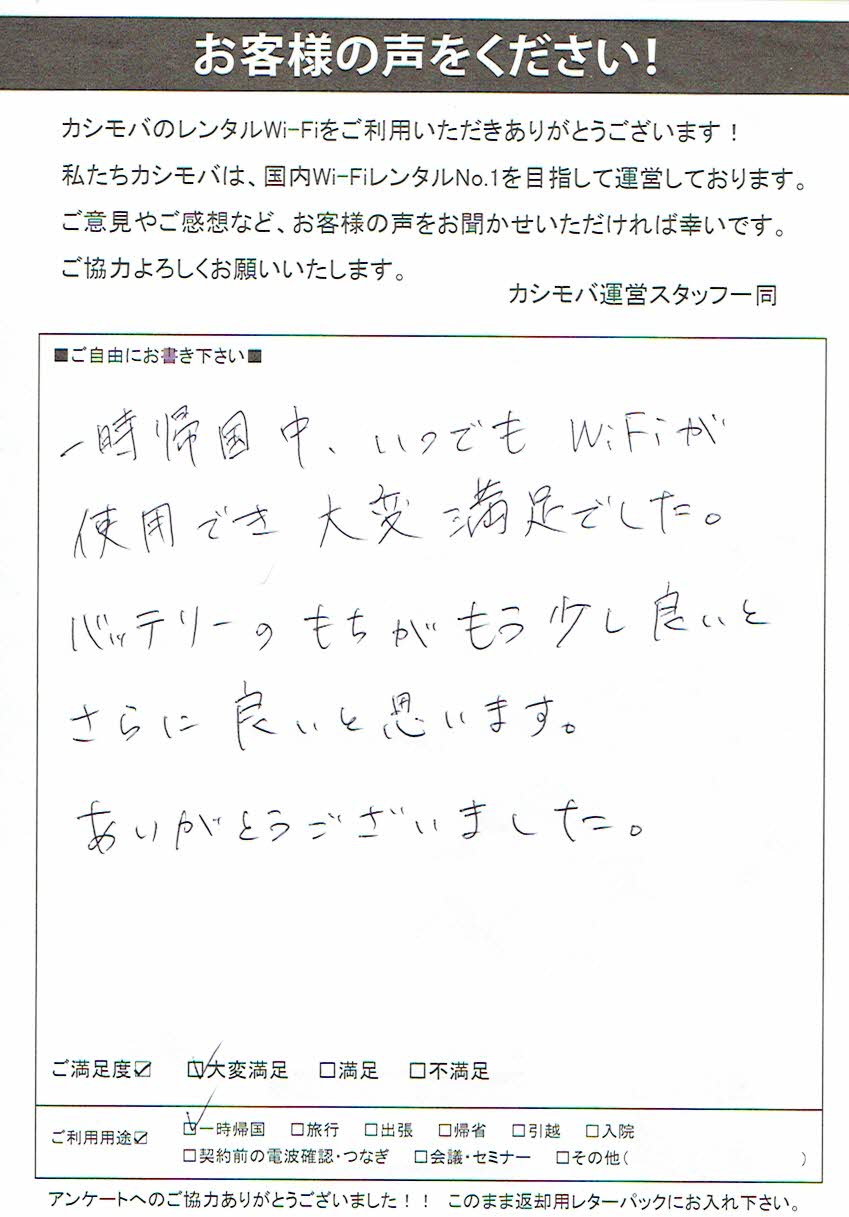 お客様の声をください!
カシモバのレンタルWi-Fiをご利用いただきありがとうございます！
私たちカシモバは、国内Wi-FiレンタルNo.1を目指して運営しております。
ご意見やご感想など、お客様の声をお聞かせいただければ幸いです。
ご協力よろしくお願いいたします。
カシモバ運営スタッフ一同
■ご自由にお書き下さい■
一時帰国中、いつでも WiFiが
使用でき 大変 満足でした。
バッテリーの もちが もう 少し 良いと
さらに 良いと思います。
ありがとうございました。
ご満足度☑ ☑大変満足 □満足 □不満足
ご利用用途☑ ☑一時帰国 □旅行 □出張 □帰省 □引越 □入院
□契約前の電波確認・つなぎ □会議・セミナー □その他( )
アンケートへのご協力ありがとうございました！！ このまま返却用レターパックにお入れ下さい。